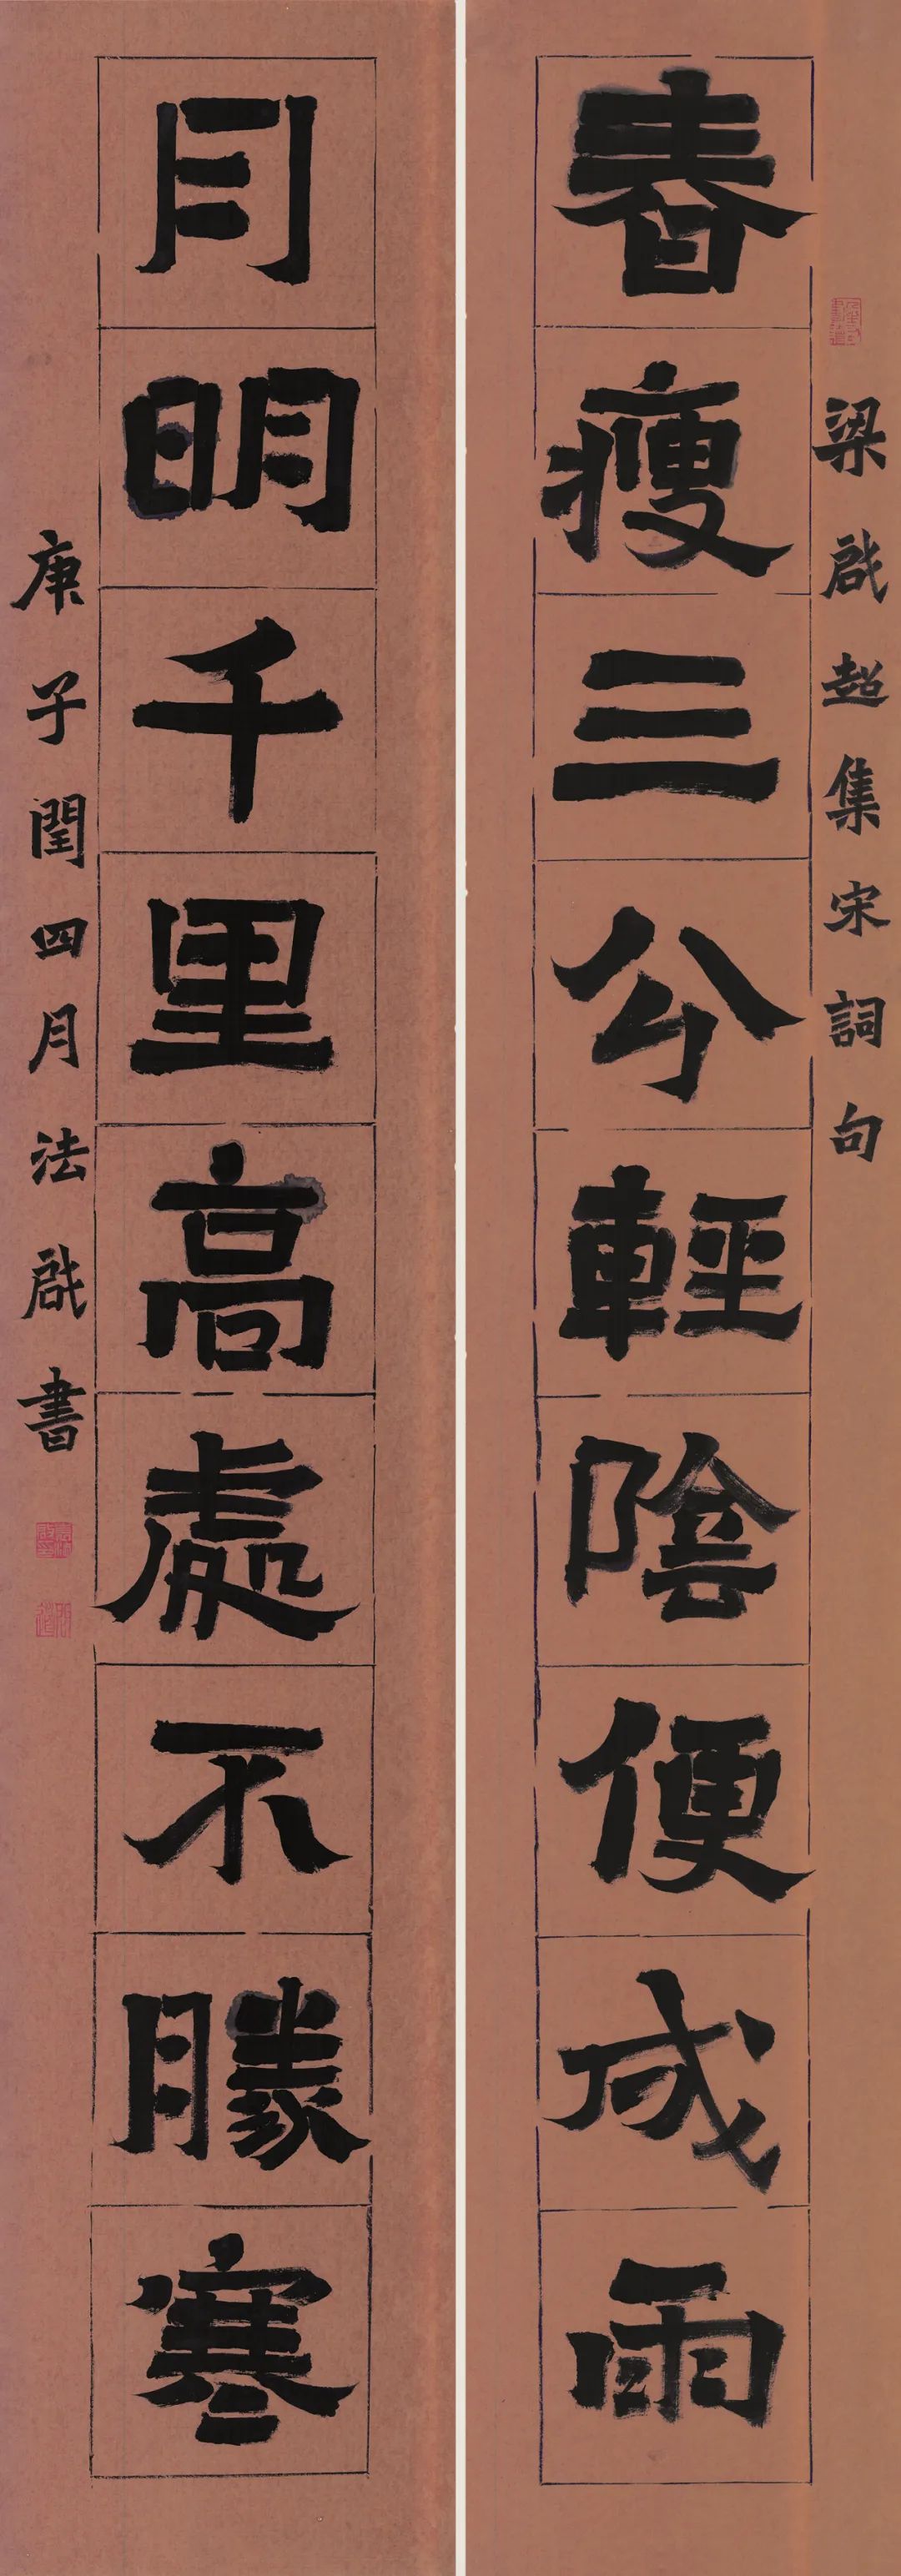 梁啟超集宋詞句
春瘦三分輕陰便成雨
月明千里高處不勝寒
庚子閏四月法啟書